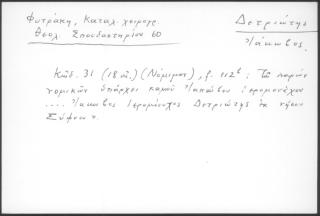 Φυτράκη, Καταλ. χειρογρ.
Θεολ. Σπουδαστηρίου 60
Δετριώτης
Ἰάκωβος.
Κῶδ. 31 (18 αἰ.) (Νόμιμον), f. 112b: Τὸ παρὸν
νομικὸν ὑπάρχει καμοῦ Ἰακώβου ἱερομονάχου
.... Ἰάκωβος ἱερομόναχος Δετριώτης ἐκ νήσου
Σίφνου.